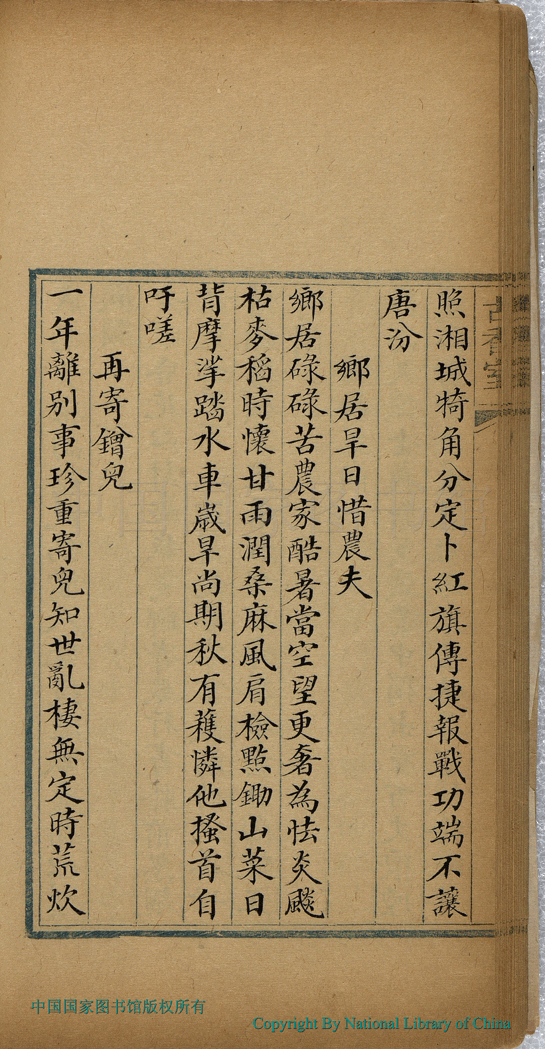 古香室
照湘城犄角分定卜紅旗傳捷報戰功端不讓
唐汾
鄉居旱日惜農夫
鄉居碌碌苦農家酷暑當空望更奢為怯炎飈
枯麥稻時懷甘雨潤桑麻風肩檢點鋤山菜日
背摩挲踏水車歲旱尚期秋有穫憐他搔首自
吁嗟
再寄鏳兒
一年離別事珍重寄兒知世亂棲無定時荒炊
中国国家图书馆版权所有
Copyright By National Library of China